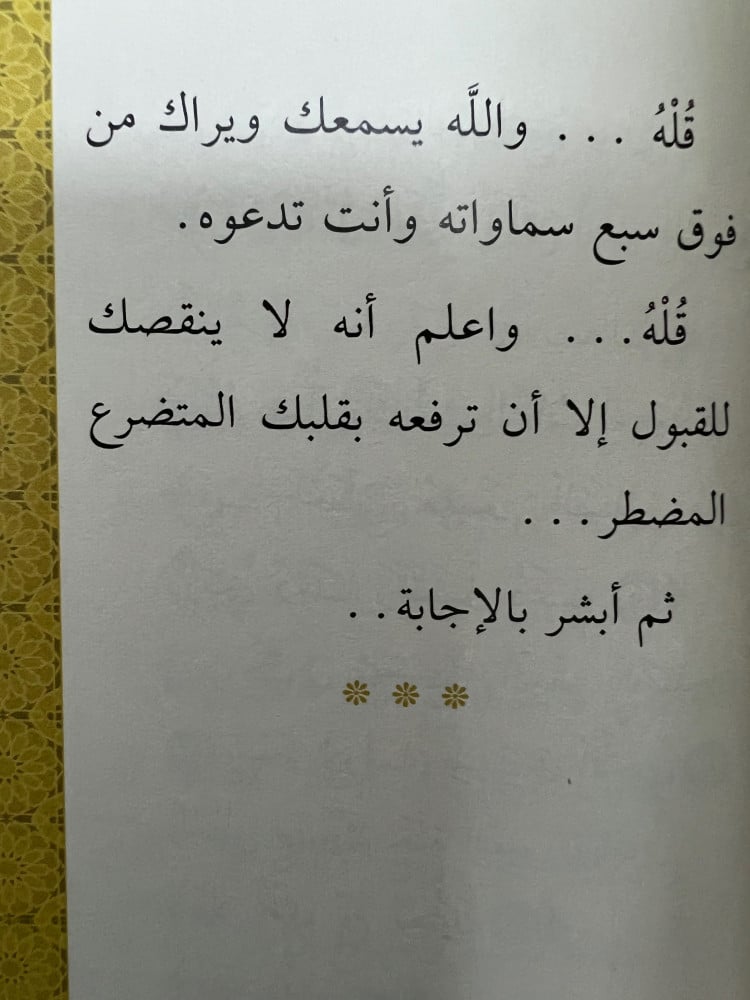 قُلْهُ ... واللَّه يسمعك ويراك من
فوق سبع سماواته وأنت تدعوه.
قُلْهُ... واعلم أنه لا ينقصك
للقبول إلا أن ترفعه بقلبك المتضرع
المضطر...
ثم أبشر بالإجابة..